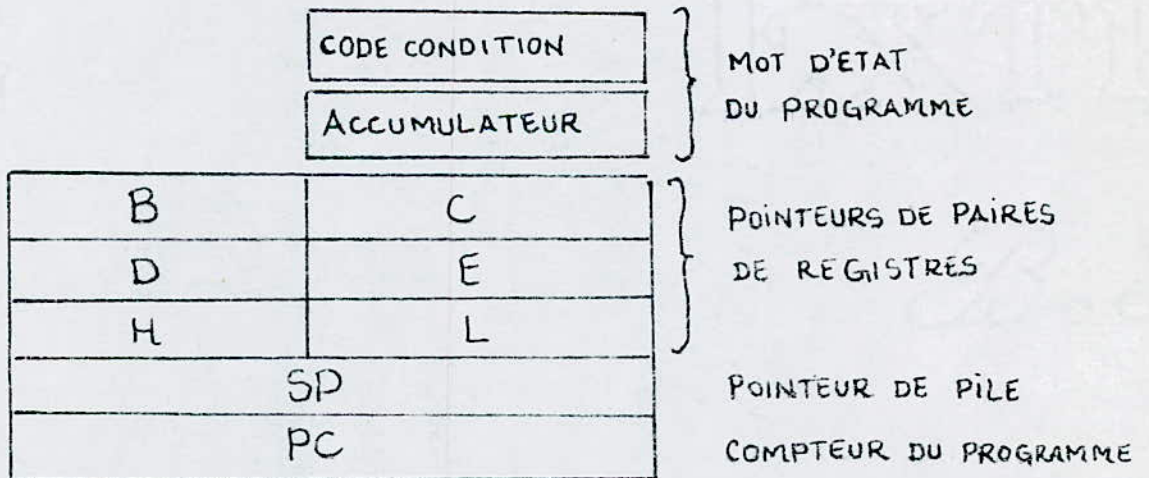 CODE CONDITION
ACCUMULATEUR
MOT D'ETAT
DU PROGRAMME
B C
D E
H L
POINTEURS DE PAIRES
DE REGISTRES
SP
POINTEUR DE PILE
PC
COMPTEUR DU PROGRAMME